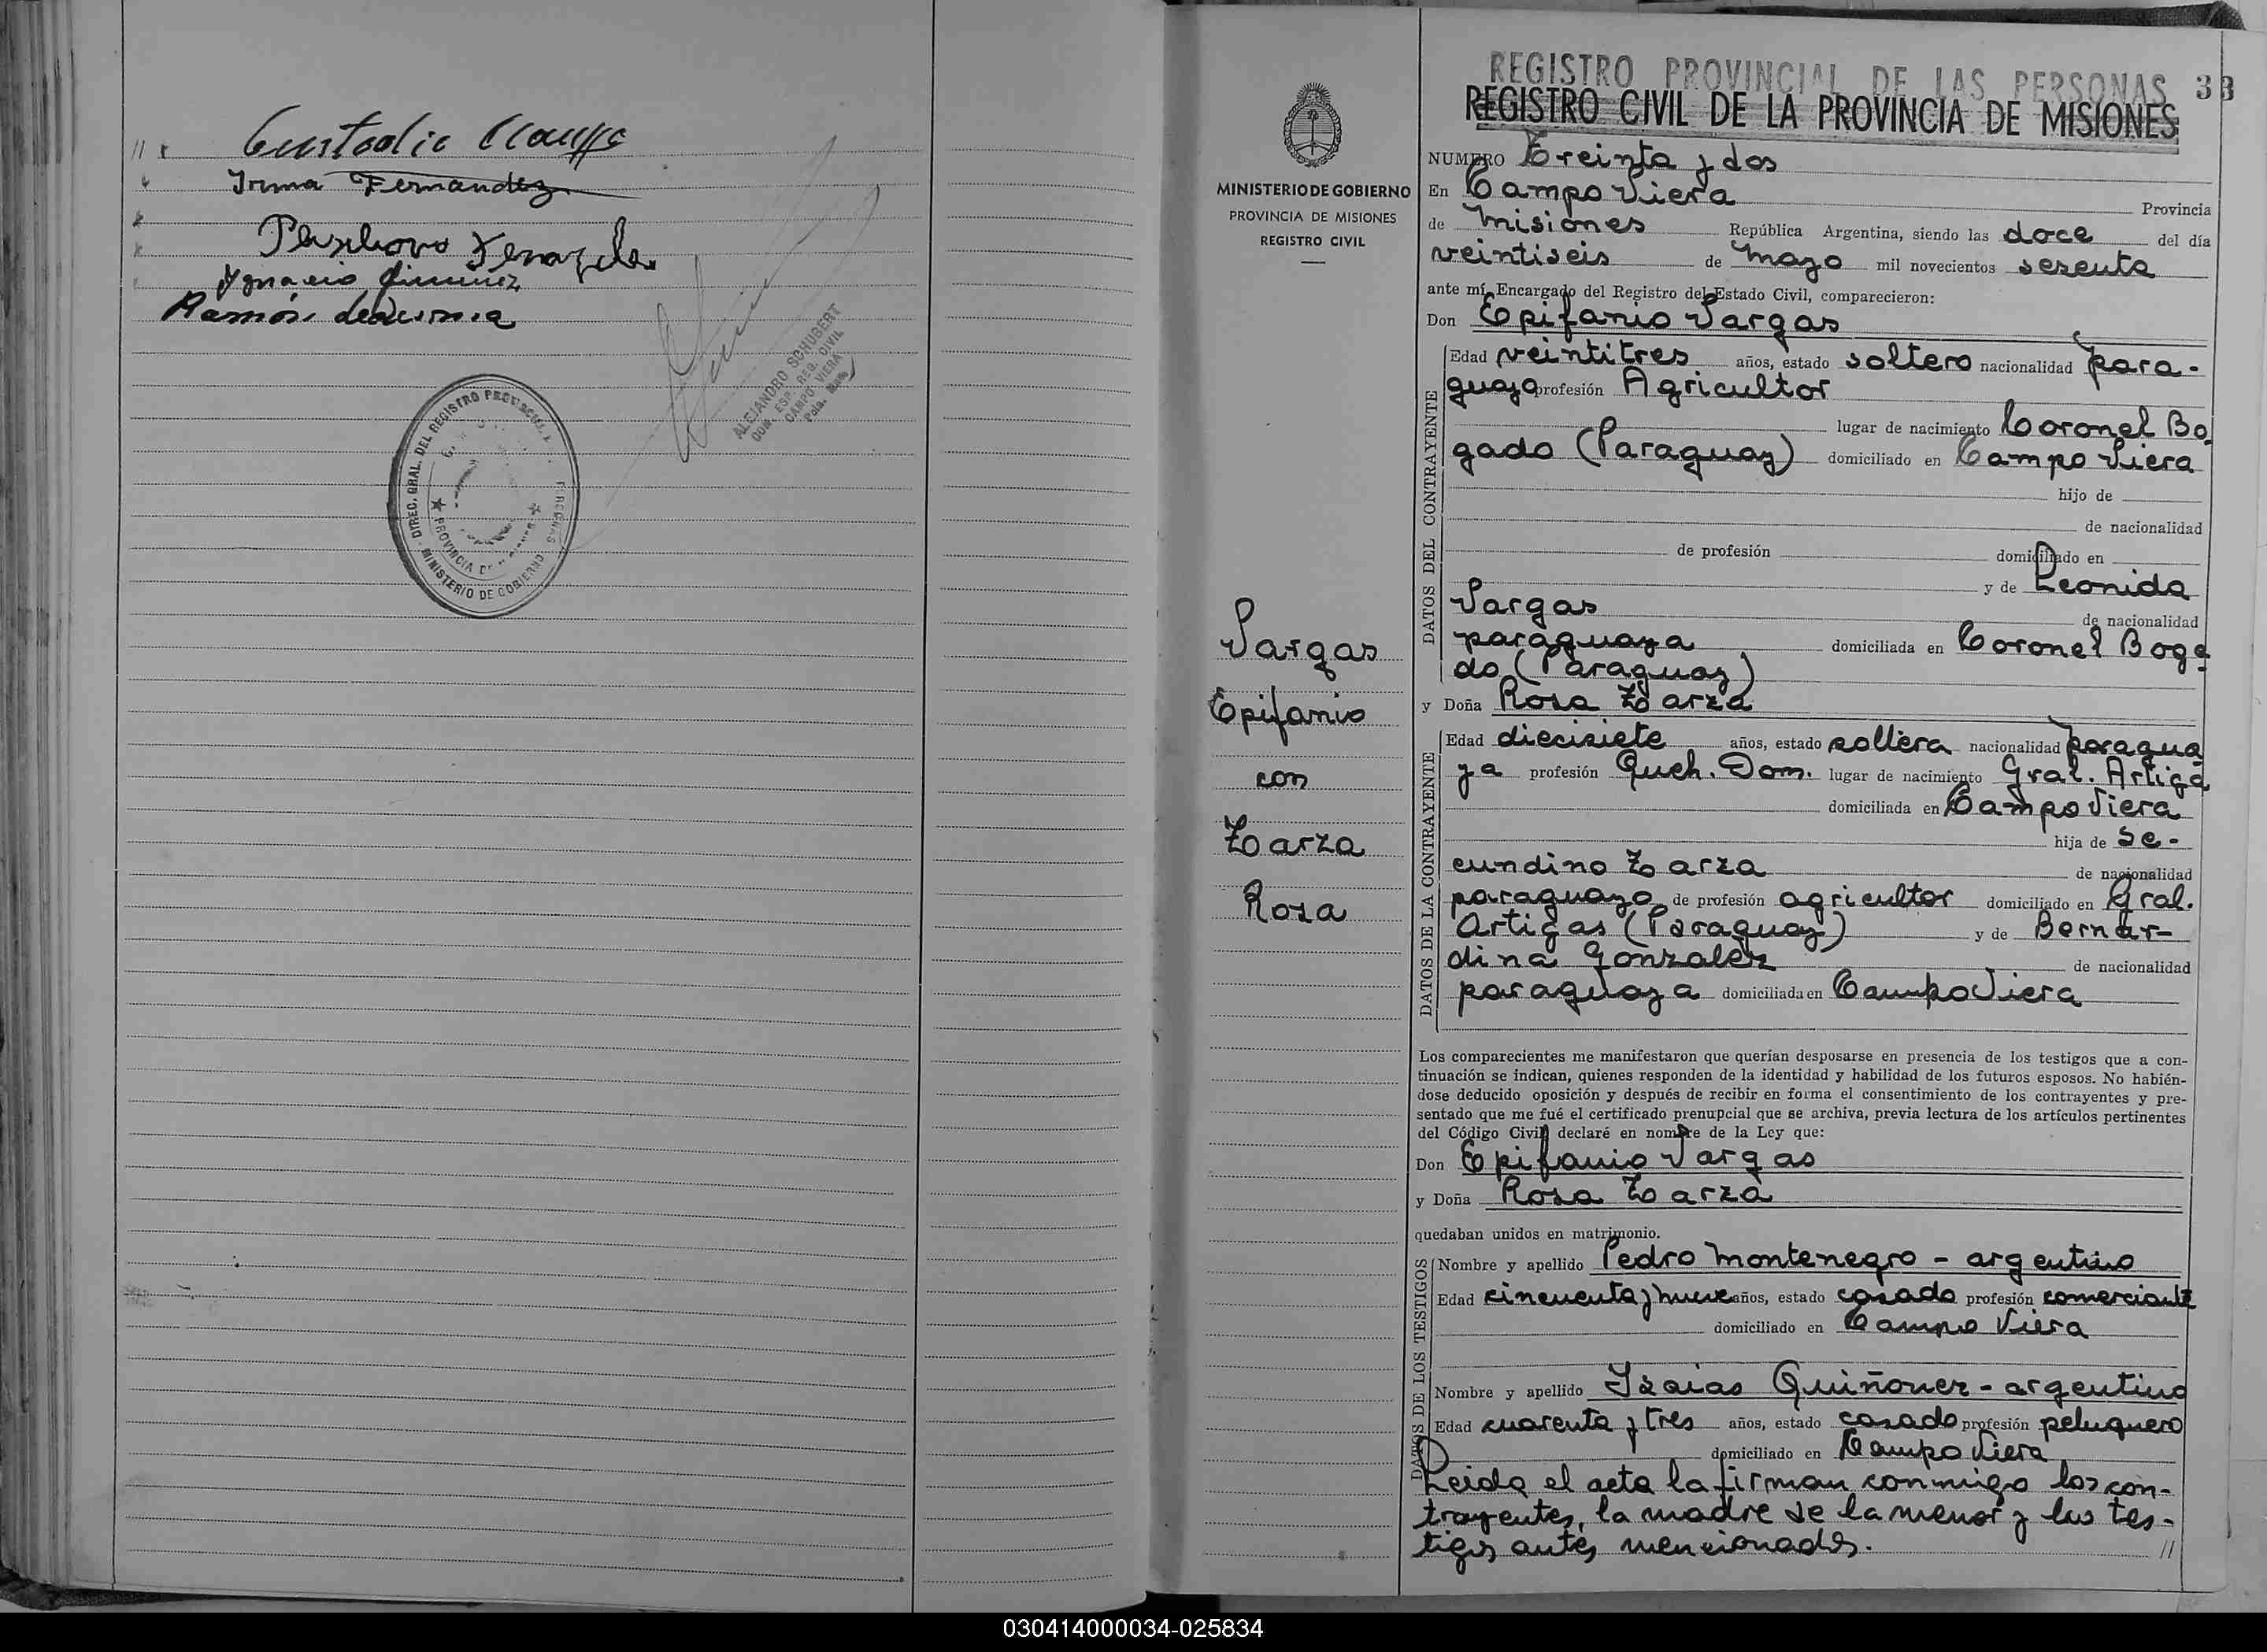 Custodio
Irma Fernandez
Ygnacio Jimenez
Ramón Ledesma
ALEJANDRO SCHUBERT
REG. CIVIL
CAMPO VIERA
DIREC. GRAL. DEL REGISTRO
MINISTERIO DE GOBIERNO
PROVINCIA DE
MINISTERIO DE GOBIERNO
PROVINCIA DE MISIONES
REGISTRO CIVIL
Vargas
Epifanio
con
Zarza
Rosa
REGISTRO PROVINCIAL DE LAS PERSONAS 33
REGISTRO CIVIL DE LA PROVINCIA DE MISIONES
NUMERO Treinta y dos
En Campo Viera Provincia
de Misiones República Argentina, siendo las doce del día
veintiseis de Mayo mil novecientos sesenta
ante mí, Encargado del Registro del Estado Civil, comparecieron:
Don Epifanio Vargas
DATOS DEL CONTRAYENTE
Edad veintitres años, estado soltero nacionalidad para-
guayo profesión Agricultor
lugar de nacimiento Coronel Bo
gado (Paraguay) domiciliado en Campo Viera
hijo de
de nacionalidad
de profesión domiciliado en
y de Leonida
Vargas de nacionalidad
paraguaya domiciliada en Coronel Boga
do (Paraguay)
y Doña Rosa Zarza
DATOS DE LA CONTRAYENTE
Edad diecisiete años, estado soltera nacionalidad paragua
ya profesión Queh. Dom. lugar de nacimiento Gral. Artiga
domiciliada en Campo Viera
hija de Se-
cundino Zarza de nacionalidad
paraguayo de profesión agricultor domiciliado en Gral.
Artigas (Paraguay) y de Bernar-
dina Gonzalez de nacionalidad
paraguaya domiciliada en Campo Viera
Los comparecientes me manifestaron que querían desposarse en presencia de los testigos que a con-
tinuación se indican, quienes responden de la identidad y habilidad de los futuros esposos. No habién-
dose deducido oposición y después de recibir en forma el consentimiento de los contrayentes y pre-
sentado que me fué el certificado prenupcial que se archiva, previa lectura de los artículos pertinentes
del Código Civil declaré en nombre de la Ley que:
Don Epifanio Vargas
y Doña Rosa Zarza
quedaban unidos en matrimonio.
DATOS DE LOS TESTIGOS
Nombre y apellido Pedro Montenegro - argentino
Edad cincuenta y nueve años, estado casado profesión comerciante
domiciliado en Campo Viera
Nombre y apellido Isaias Quiñonez - argentino
Edad cuarenta y tres años, estado casado profesión peluquero
domiciliado en Campo Viera
Leida el acta la firman conmigo los con-
trayentes, la madre de la menor y los tes-
tigos antes mencionados. //
030414000034-025834